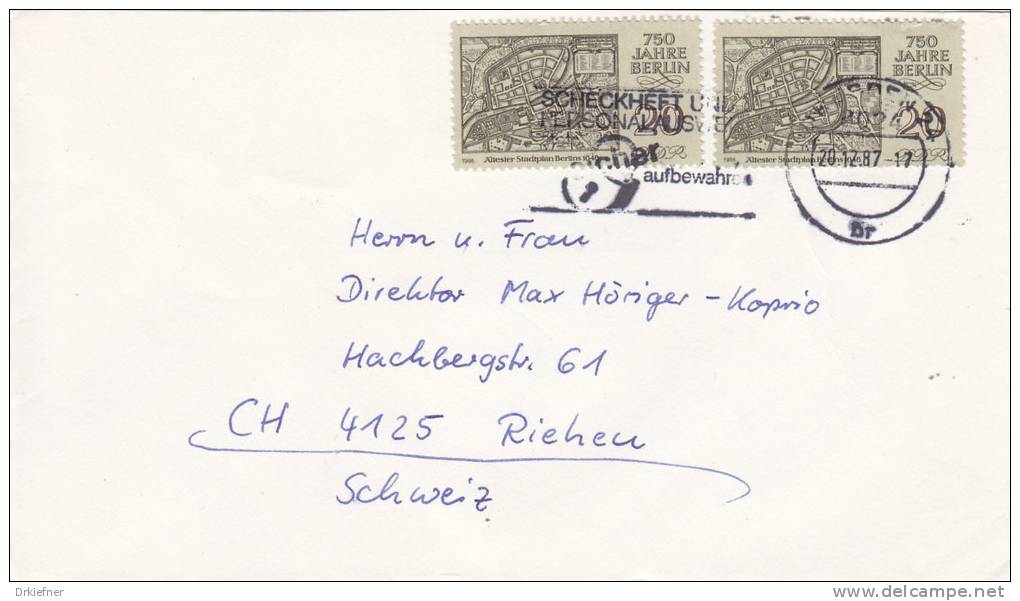 750
JAHRE
BERLIN
20
DDR
1986 Ältester Stadtplan Berlins 1648
750
JAHRE
BERLIN
20
DDR
1986 Ältester Stadtplan Berlins 1648
SCHECKHEFT UND
PERSONALAUSWEIS
sicher
aufbewahren
8024
20.12.87-17
br
Herrn u. Frau
Direktor Max Höriger-Koprio
Hackbergstr. 61
CH 4125 Riehen
Schweiz
Drkiefner
delcampe.net